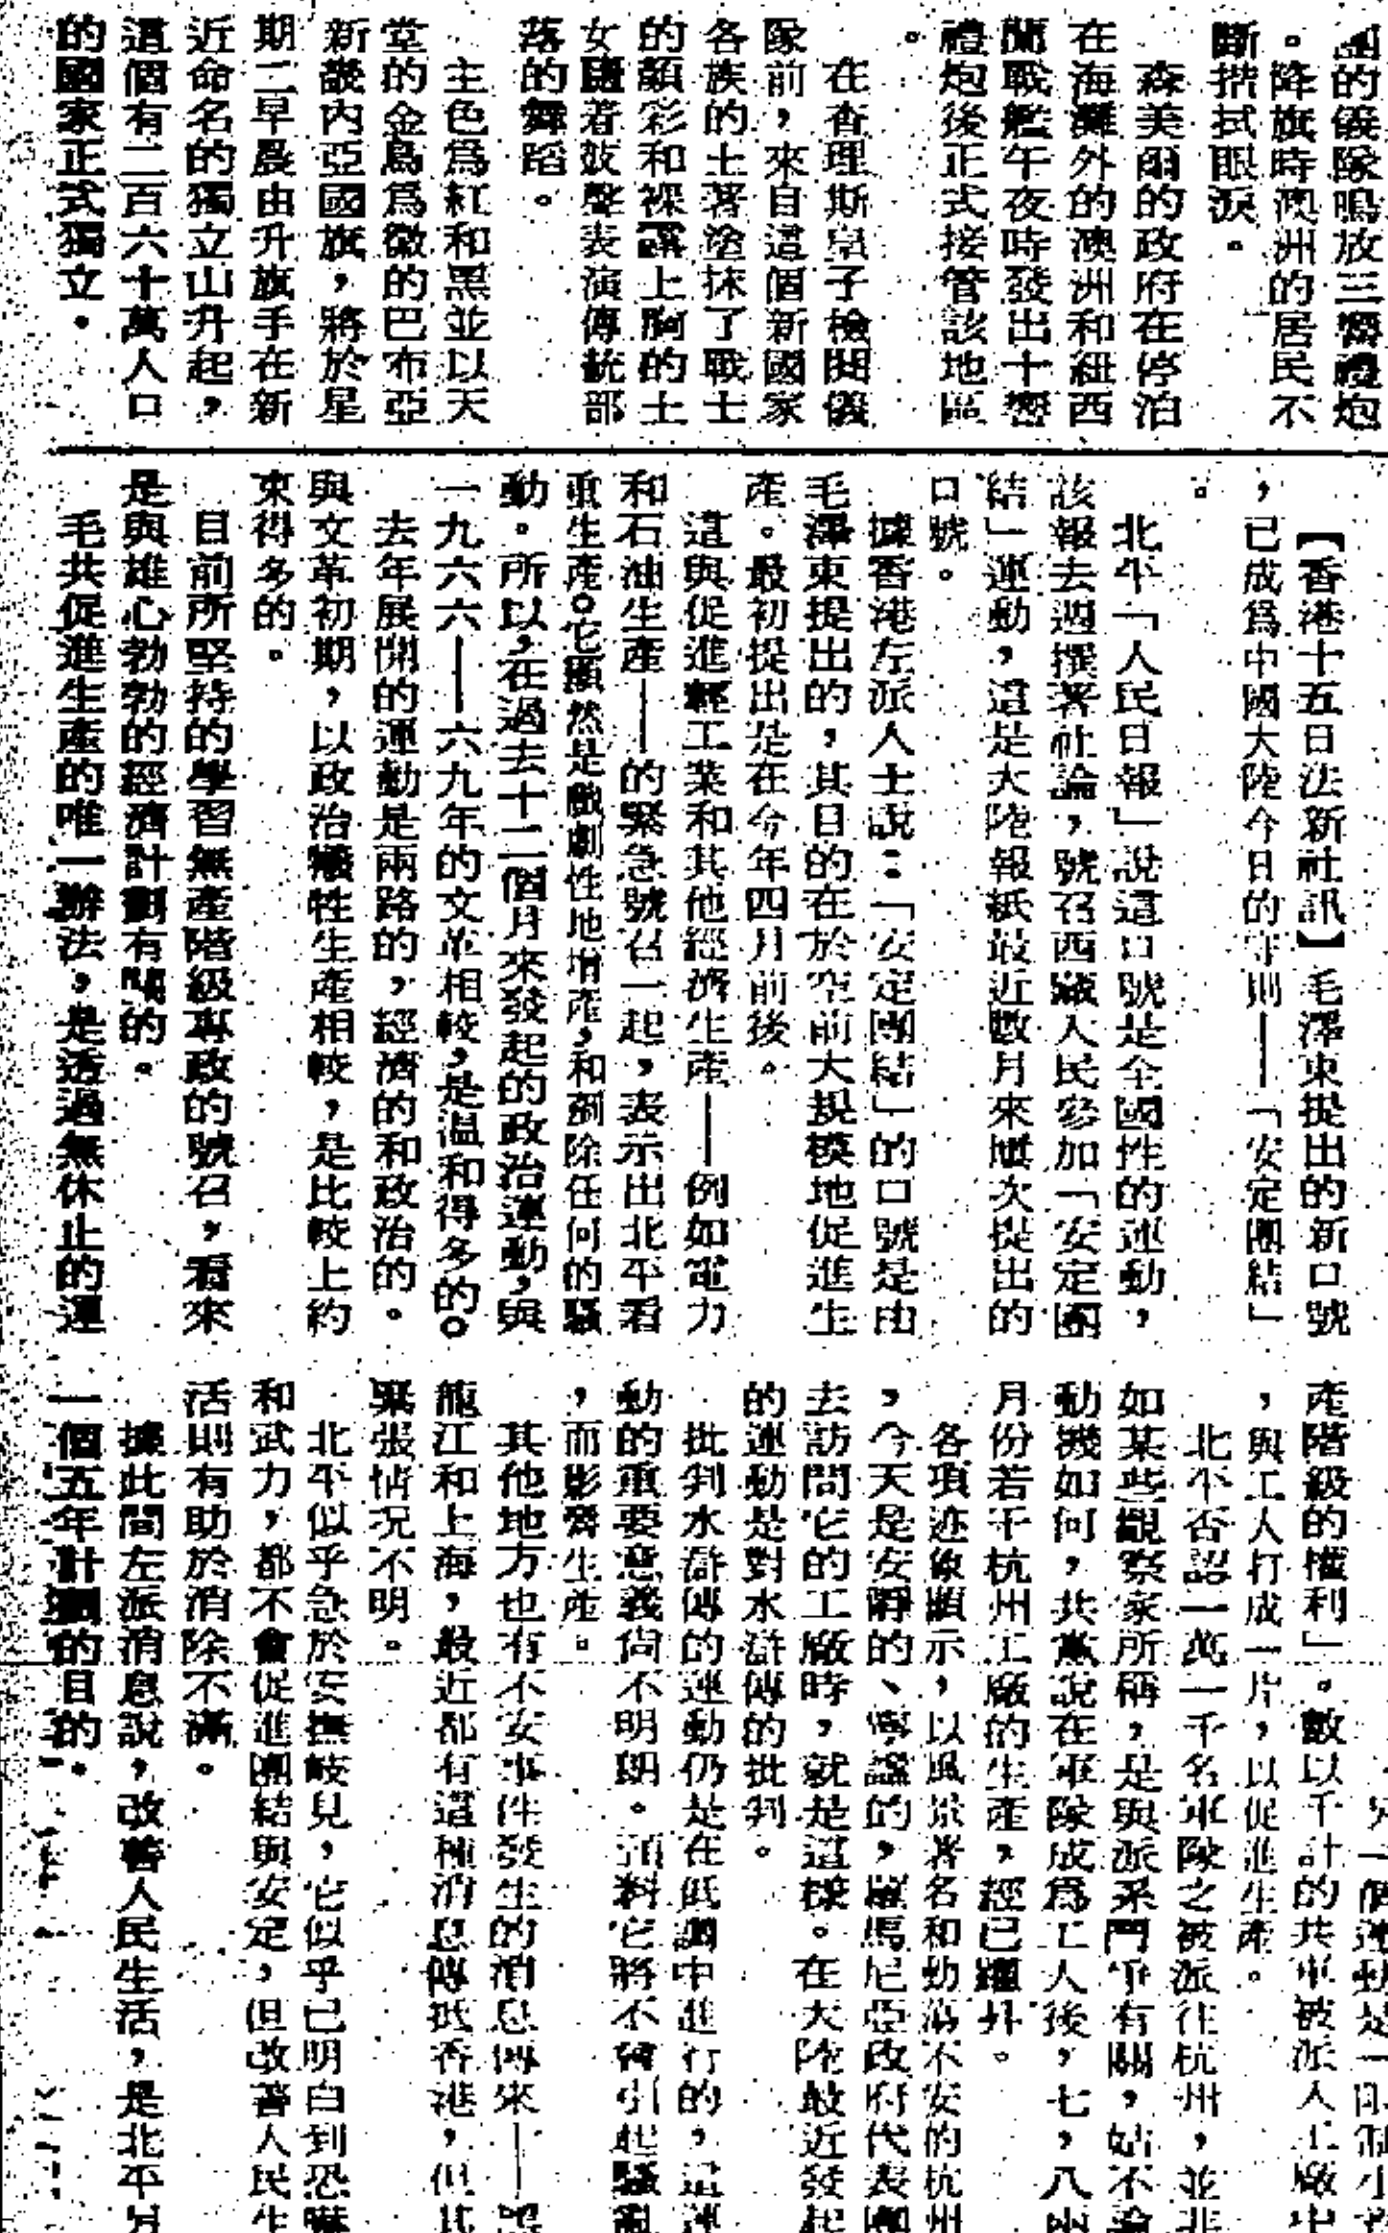 的儀隊鳴放三響禮炮
。降旗時澳洲的居民不
斷揩拭眼淚。
森美爾的政府在停泊
在海灘外的澳洲和紐西
蘭戰艦午夜時發出十響
禮炮後正式接管該地區
。
在查理斯皇子檢閱儀
隊前，來自這個新國家
各族的土著塗抹了戰士
的顏彩和裸露上胸的土
女隨着鼓聲表演傳統部
落的舞蹈。
主色為紅和黑並以天
堂的金鳥為徽的巴布亞
新畿內亞國旗，將於星
期二早晨由升旗手在新
近命名的獨立山升起，
這個有二百六十萬人口
的國家正式獨立。
【香港十五日法新社訊】毛澤東提出的新口號
，已成爲中國大陸今日的守則——「安定團結」
。
北平「人民日報」說這口號是全國性的運動，
該報去週撰著社論，號召西藏人民參加「安定團
結」運動，這是大陸報紙最近數月來屢次提出的
口號。
據香港左派人士說：「安定團結」的口號是由
毛澤東提出的，其目的在於空前大規模地促進生
產。最初提出是在今年四月前後。
這與促進輕工業和其他經濟生產——例如電力
和石油生產——的緊急號召一起，表示出北平看
重生產。它顯然是戲劇性地增產，和剷除任何的騷
動。所以，在過去十二個月來發起的政治運動，與
一九六六——六九年的文革相較，是温和得多的。
去年展開的運動是兩路的，經濟的和政治的。
與文革初期，以政治犧牲生產相較，是比較上約
束得多的。
目前所堅持的學習無產階級專政的號召，看來
是與雄心勃勃的經濟計劃有關的。
毛共促進生產的唯一辦法，是透過無休止的運
一個運動是一限制小資
產階級的權利」。數以千計的共軍被派入工廠中
，與工人打成一片，以促進生產。
北平否認一萬一千名軍隊之被派往杭州，並非
如某些觀察家所稱，是與派系鬥爭有關，姑不論
動機如何，共黨說在軍隊成爲工人後，七，八兩
月份若干杭州工廠的生產，經已躍升。
各項迹象顯示，以風景著名和動蕩不安的杭州
，今天是安靜的、寧謐的，羅馬尼亞政府代表團
去訪問它的工廠時，就是這樣。在大陸最近發起
的運動是對水滸傳的批判。
批判水滸傳的運動仍是在低調中進行的，這運
動的重要意義尙不明朗。預料它將不會引起騷亂
，而影響生產。
其他地方也有不安事件發生的消息傳來——黑
龍江和上海，最近都有這種消息傳抵香港，但其
緊張情况不明。
北平似乎急於安撫歧見，它似乎已明白到恐嚇
和武力，都不會促進團結與安定，但改善人民生
活則有助於消除不滿。
據此間左派消息說，改善人民生活，是北平另
一個五年計劃的目的。